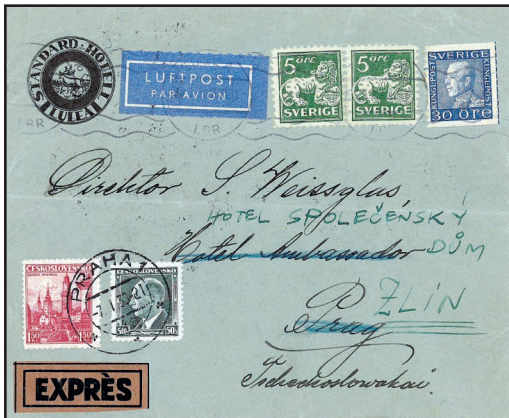 STANDARD-HOTELL
LULEÅ
LUFTPOST
PAR AVION
5 ÖRE
SVERIGE
5 ÖRE
SVERIGE
SVERIGE
30 ÖRE
Direktor S. Weissglas,
HOTEL SPOLEČENSKÝ
Hotel Ambassador DŮM
Prag ZLÍN
Tschechoslowakai.
ČESKOSLOVENSKO
1.50 1.50
ČESKOSLOVENSKO
50h
PRAHA
EXPRÈS